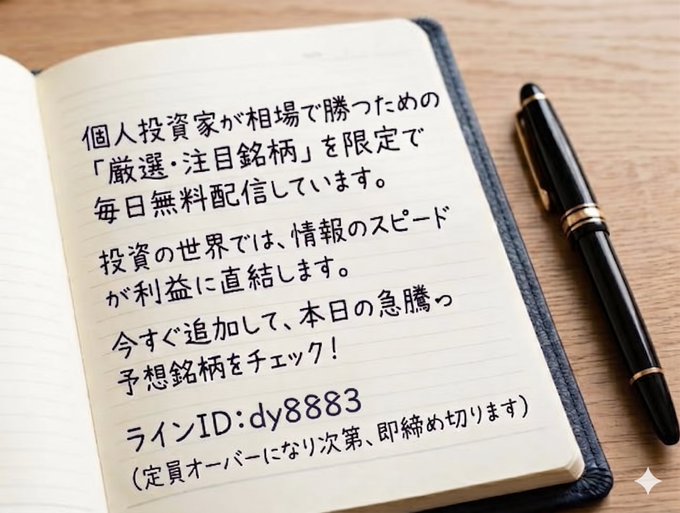 個人投資家が相場で勝つための
「厳選・注目銘柄」を限定で
毎日無料配信しています。
投資の世界では、情報のスピード
が利益に直結します。
今すぐ追加して、本日の急騰っ
予想銘柄をチェック!
ラインID:dy8883
(定員オーバーになり次第、即締め切ります)